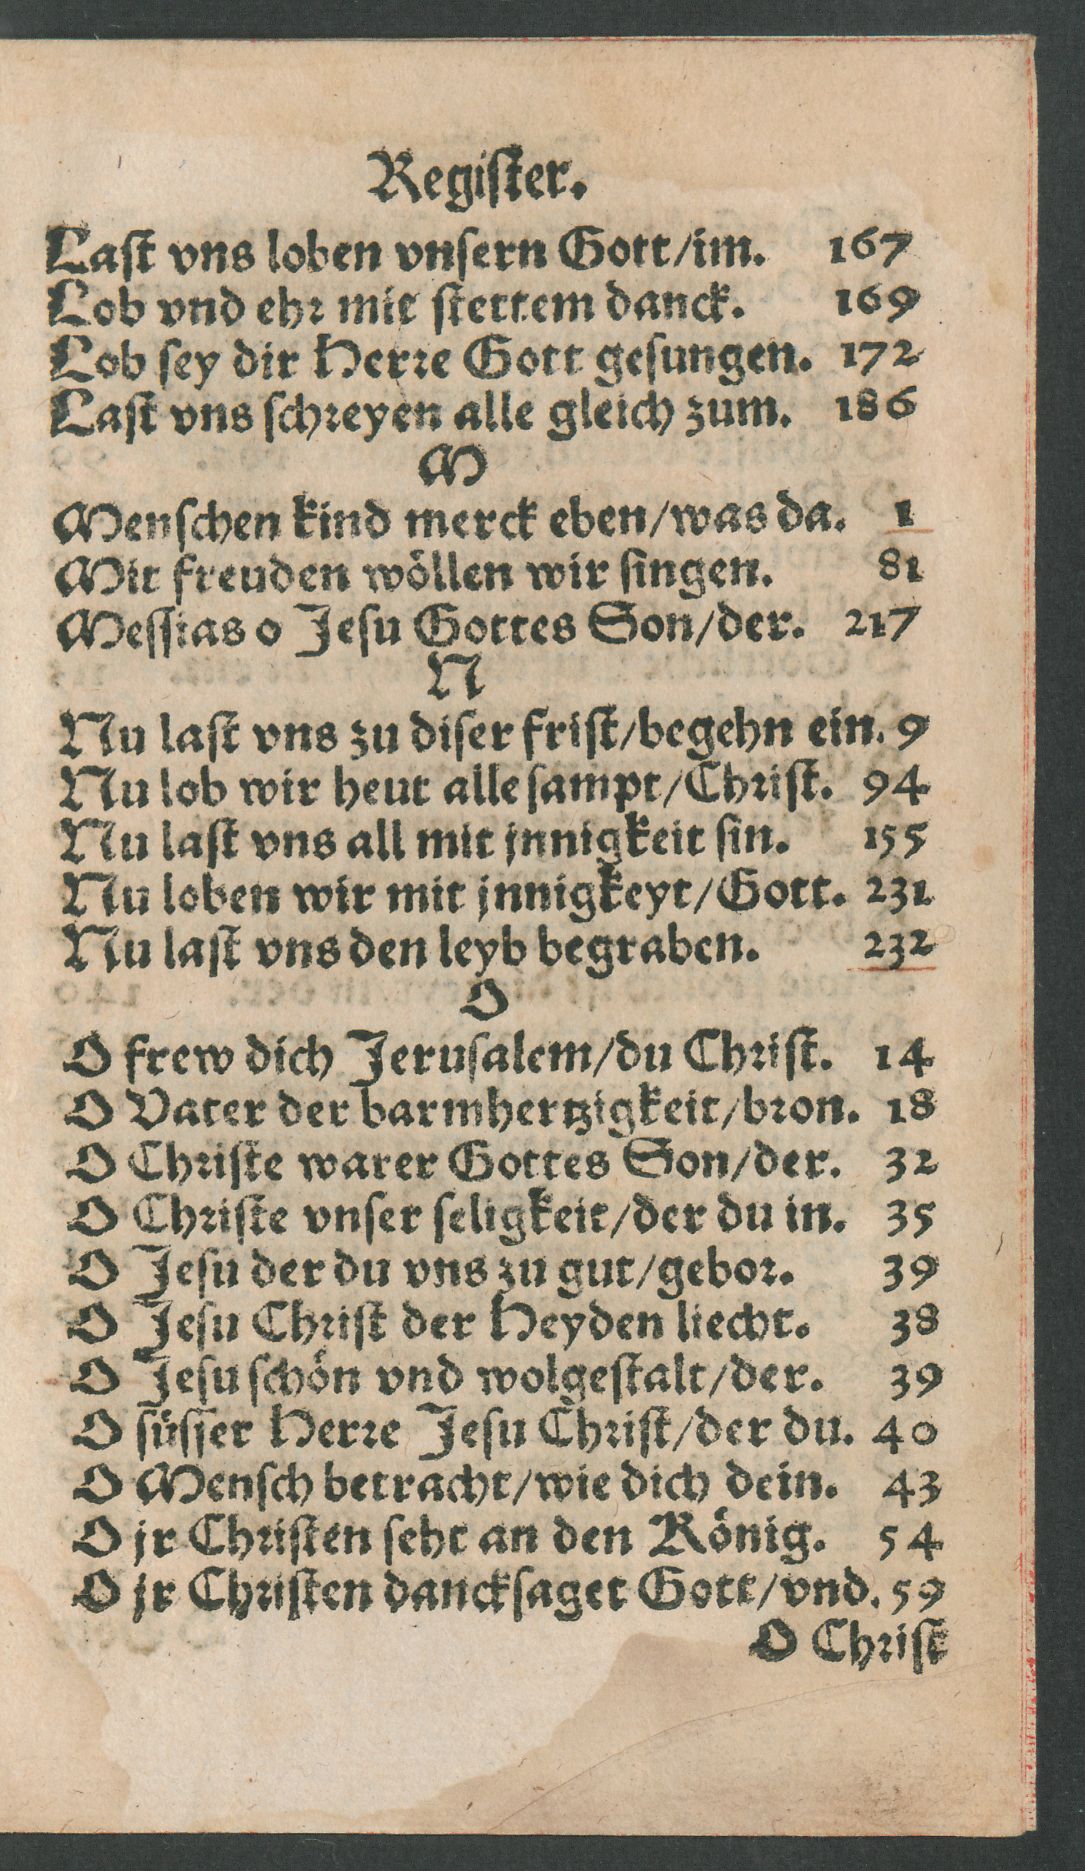 Register.
Last vns loben vnsern Gott/im. 167
Lob vnd ehr mit stettem danck. 169
Lob sey dir Herre Gott gesungen. 172
Last vns schreyen alle gleich zum. 186
M
Menschen kind merck eben/was da. 1
Mit freuden wöllen wir singen. 81
Messias o Jesu Gottes Son/der. 217
N
Nu last vns zu diser frist/begehn ein. 9
Nu lob wir heut alle sampt/Christ. 94
Nu last vns all mit jnnigkeit sin. 155
Nu loben wir mit jnnigkeyt/Gott. 231
Nu last vns den leyb begraben. 232
O
O frew dich Jerusalem/du Christ. 14
O Vater der barmhertzigkeit/bron. 18
O Christe warer Gottes Son/der. 32
O Christe vnser seligkeit/der du in. 35
O Jesu der du vns zu gut/gebor. 39
O Jesu Christ der Heyden liecht. 38
O Jesu schön vnd wolgestalt/der. 39
O süsser Herre Jesu Christ/der du. 40
O Mensch betracht/wie dich dein. 43
O jr Christen seht an den König. 54
O jr Christen dancksaget Gott/vnd. 59
O Christ